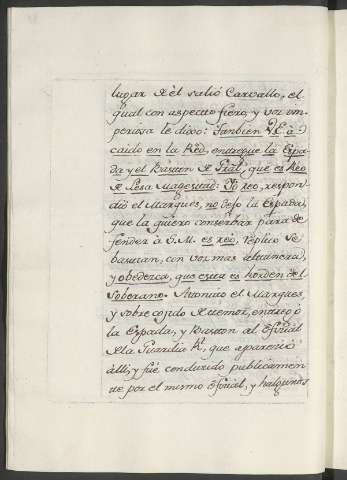 lugar de él salió Carvallo, el
qual con aspecto fiero, y voz im-
periosa le dixo: Tanbien V.E. à
caido en la Red, entregue la Espa-
da y el Baston de Gral, que es Reo
de Lesa Magestad: Yo reo, respon-
dió el Marques, no dejo la Espada,
que la quiero conserbar para de
fender à S.M. es reo, replico Se-
bastian, con voz mas altanera,
y obedezca, que esta es horden del
Soberano. Atonito el Marques,
y sobre cojido de temor, entregó
la Espada, y Baston al Oficial
de la Guardia Rl, que aparecio
alli, y fué conducido publicamen
te por el mismo Oficial, y halgunos